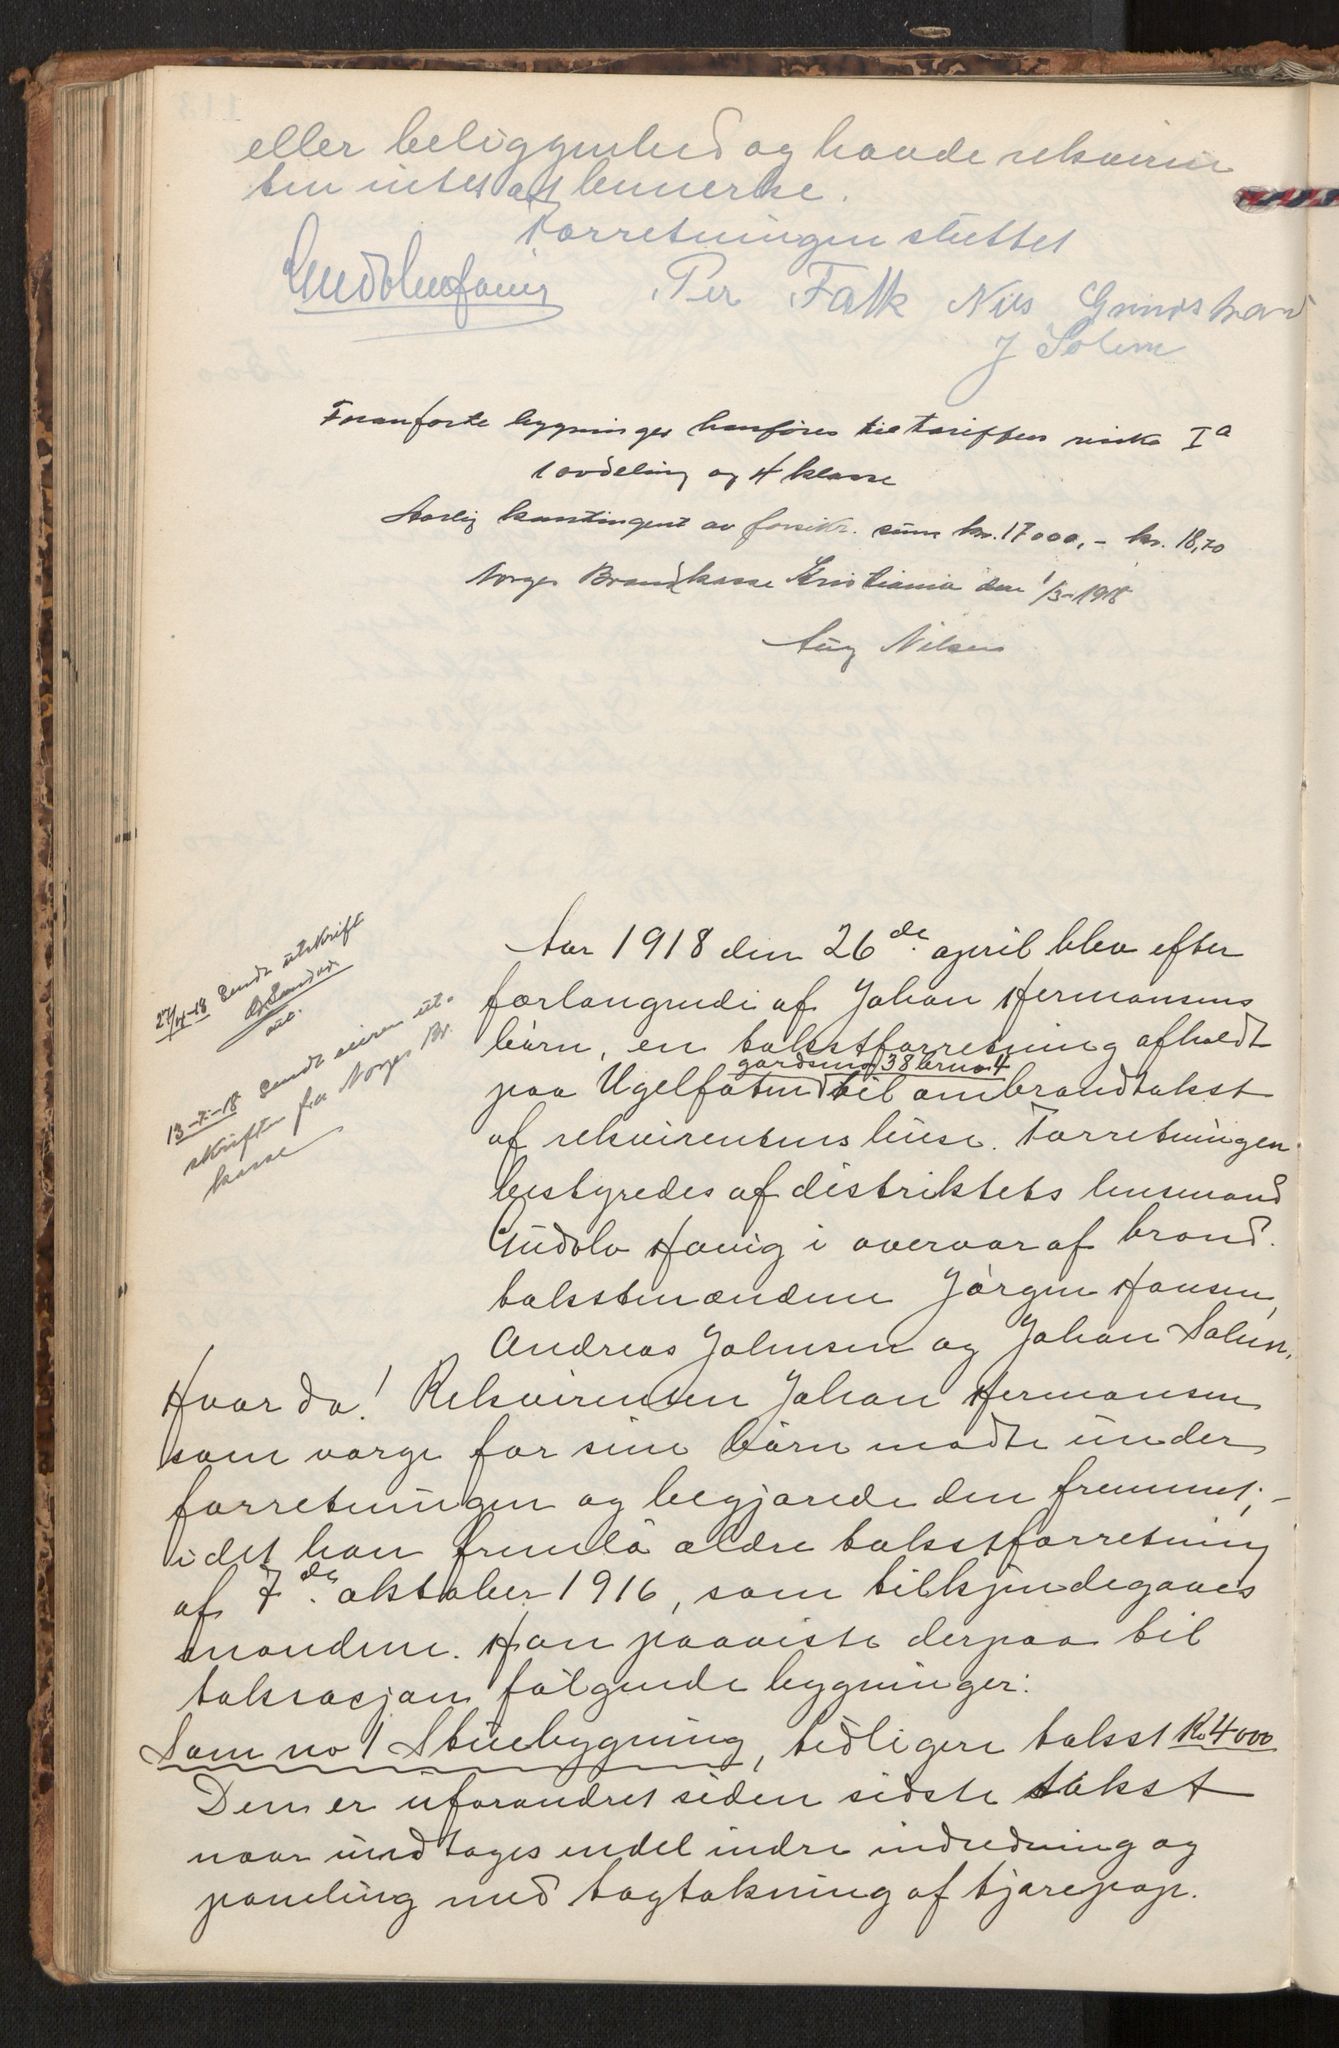 eller beliggenhed og havde rekviren
ten intet at bemerke.
Forretningen sluttet
Gudolv Høvig Per Falk Nils Grindstrand
J Solem
Foranførte bygninger henføres til tariffens risiko I a
1 avdeling og 4 klasse
Aarlig kontingent av forsikr. sum kr. 17000,- kr. 18,70
Norges Brandkasse Kristiania den 1/3-1918
Aug Nilsen
27/4-18 Sendt utskrift
13-7-18 Sendt eieren ut-
skriften fra Norges Br.
kasse
Aar 1918 den 26de april blev efter
forlangende af Johan Hermansens
børn, en takstforretning afholdt
gardsno 38 brno 4
paa Ugelfatmo til ombrandtakst
af rekvirentens huse. Forretningen
bestyredes af distriktets lensmand
Gudolv Høvig i overvær af brand-
takstmændene Jørgen Hansen,
Andreas Johnsen og Johan Solem.
Hvor da! Rekvirenten Johan Hermansen
som værge for sine børn mødte under
forretningen og begjærede den fremmet; -
idet han fremla ældre takstforretning
af 7de oktober 1916, som tilkjendegaves
mændene. Han paaviste derpaa til
taksasjon følgende bygninger:
Som no 1 Stuebygning, tidligere takst Kr 4000
Den er uforandret siden sidste takst
naar undtages endel indre indredning og
paneling med tagtækning af tjærepap.